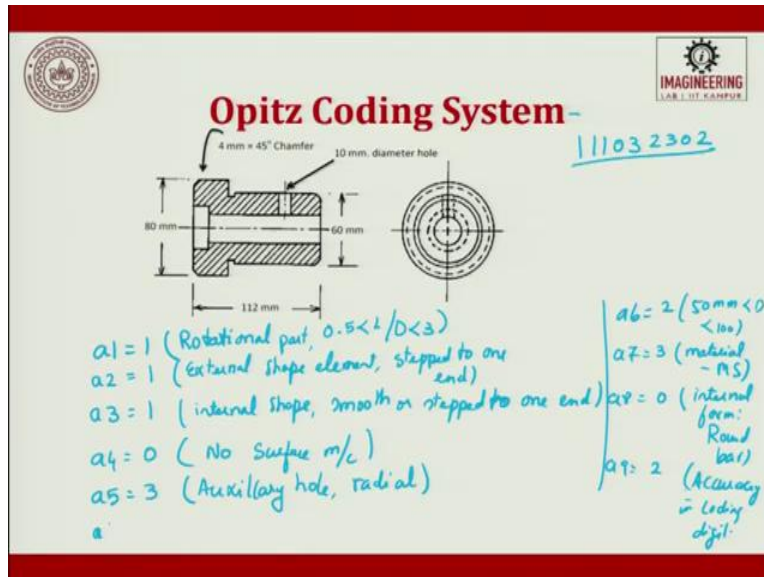 IMAGINEERING
LAB | IIT KANPUR
Opitz Coding System-
111032302
4 mm × 45° Chamfer
10 mm. diameter hole
80 mm
60 mm
112 mm
a1 = 1 (Rotational part, 0.5 < L/D < 3)
a2 = 1 (External shape element, stepped to one
end)
a3 = 1 (internal shape, smooth or stepped to one end)
a4 = 0 (No Surface m/c)
a5 = 3 (Auxillary hole, radial)
a
a6 = 2 (50mm < D
< 100)
a7 = 3 (material
- MS)
a8 = 0 (internal
form:
Round
bar)
a9 = 2
(Accuracy
in coding
digit.